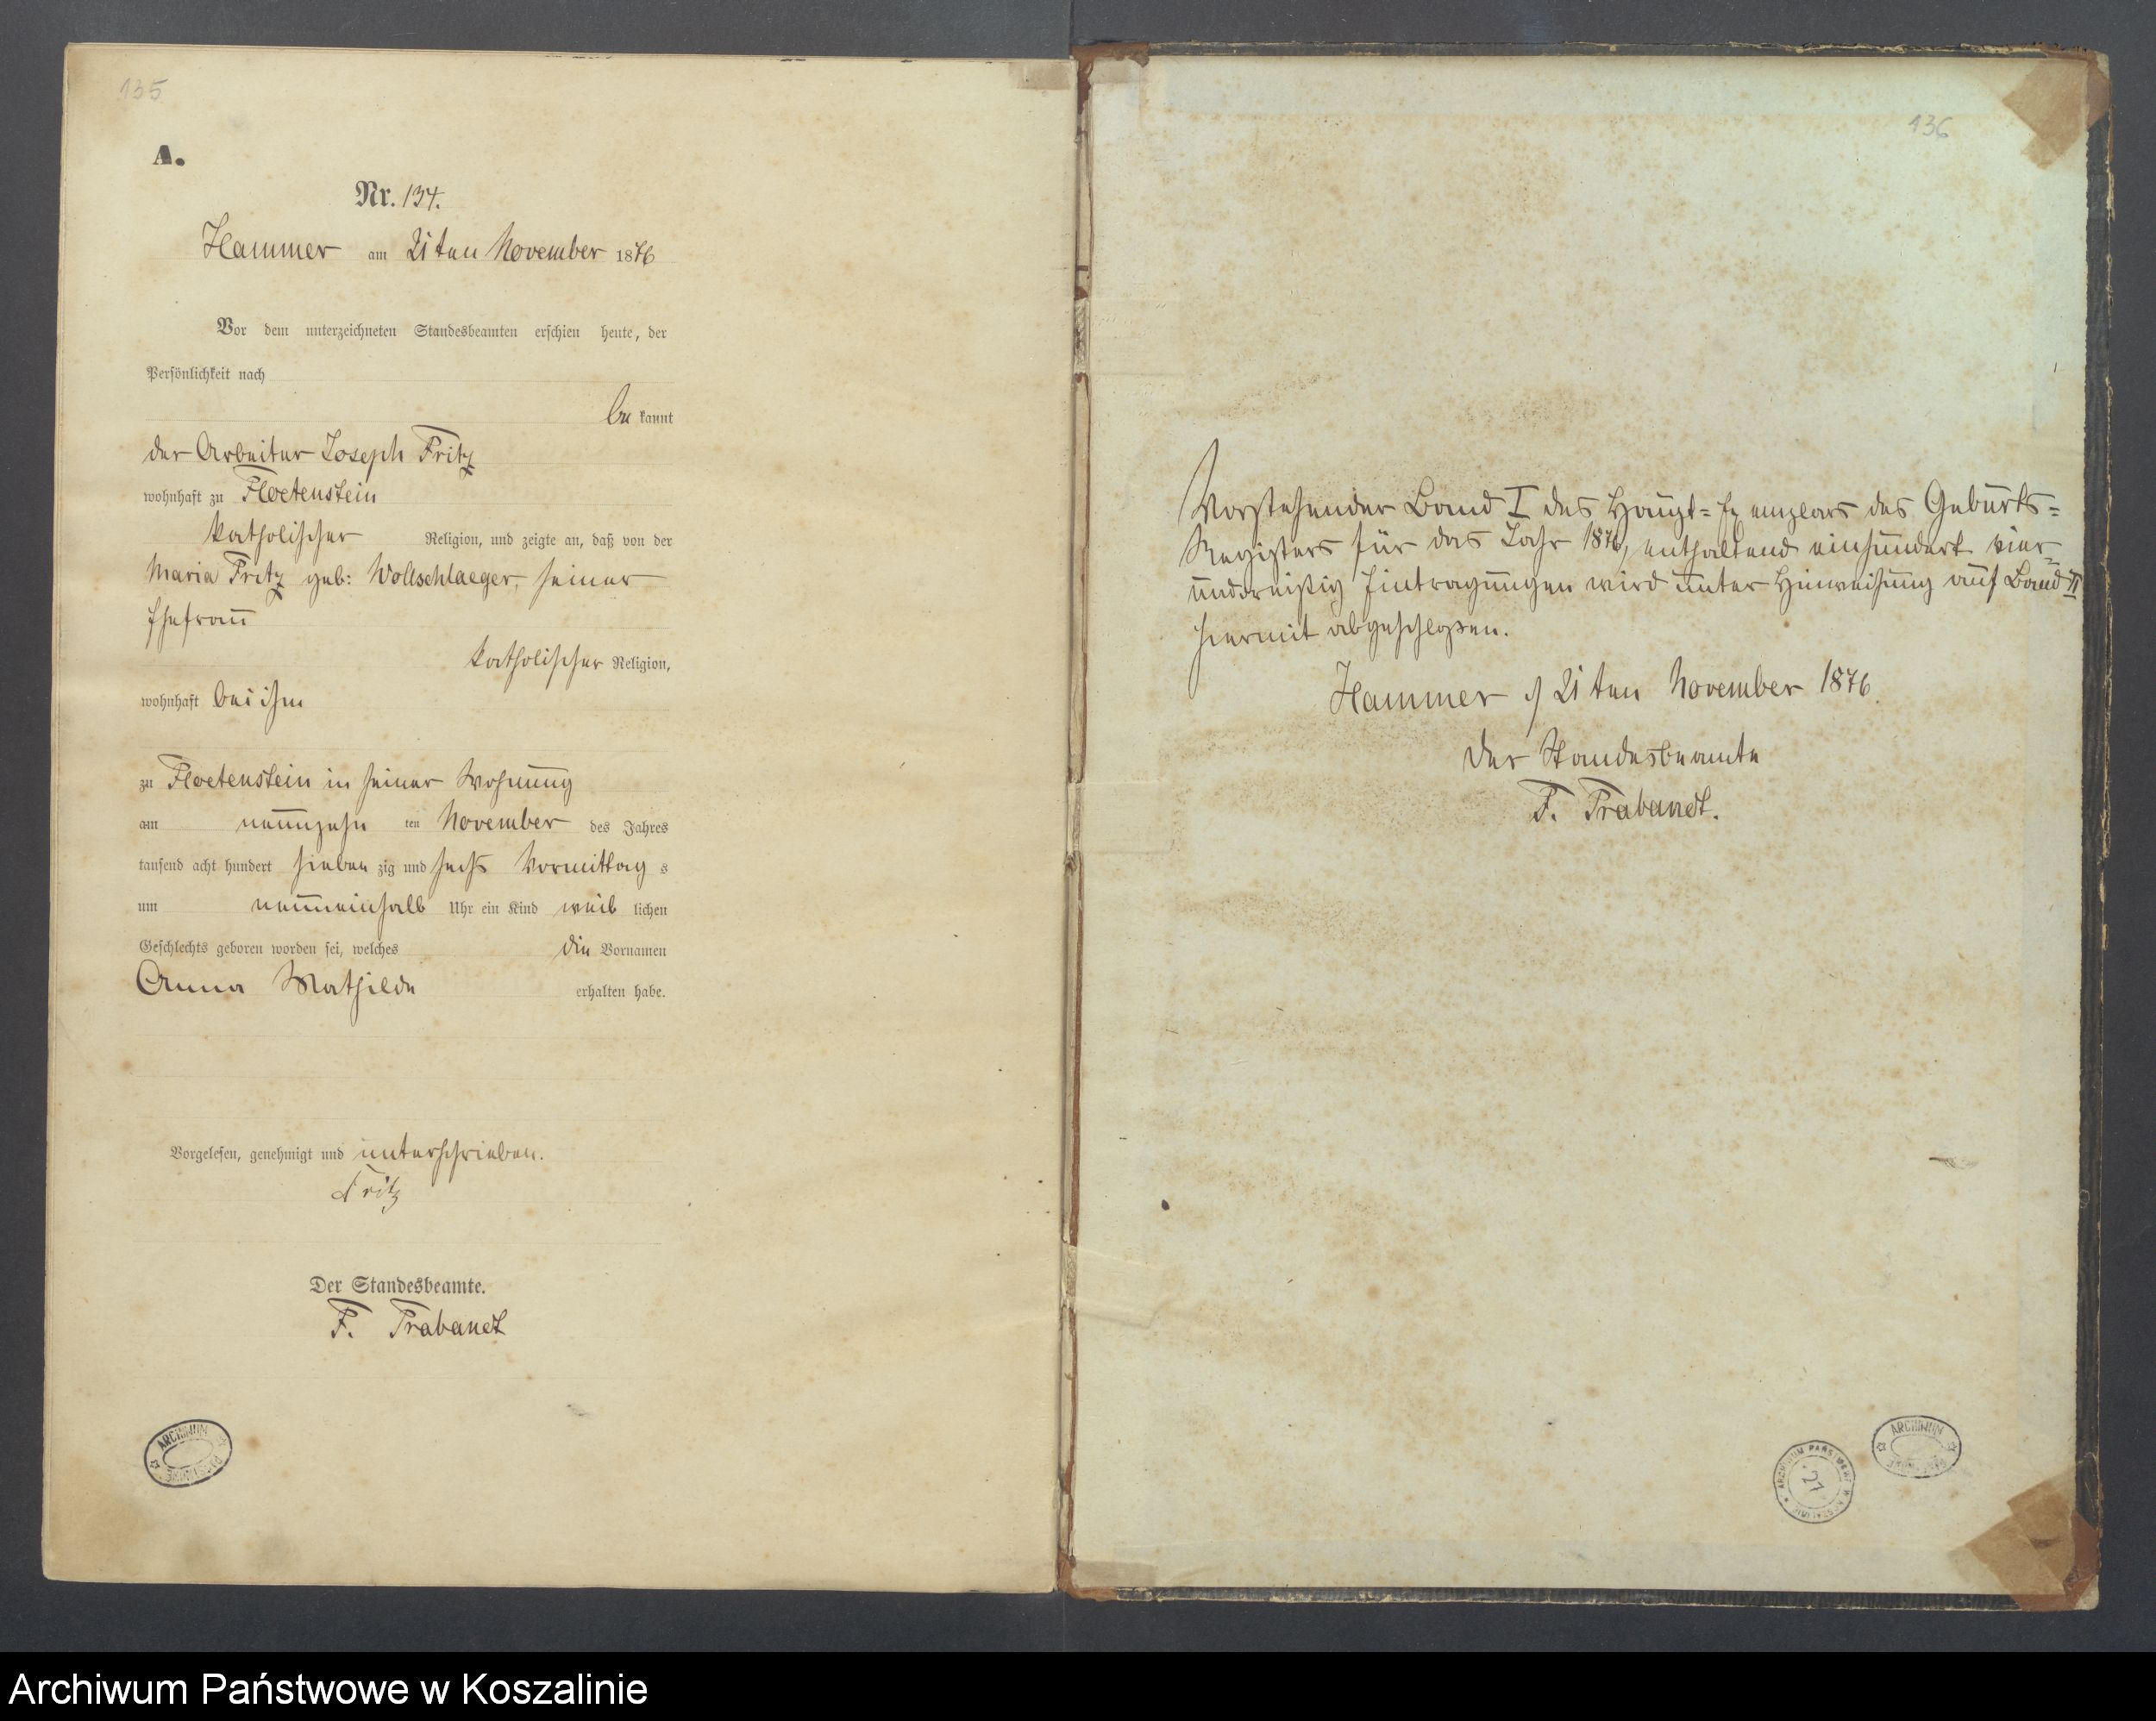 135
A.
Nr. 134.
Hammer am 21ten November 1876
Vor dem unterzeichneten Standesbeamten erschien heute, der
Persönlichkeit nach
be kannt
der Arbeiter Joseph Fritz
wohnhaft zu Floetenstein
katholischer Religion, und zeigte an, daß von der
Maria Fritz geb: Wollschlaeger, seiner
Ehefrau
katholischer Religion,
wohnhaft bei ihm
zu Floetenstein in seiner Wohnung
am neunzehn ten November des Jahres
tausend acht hundert sieben zig und sechs Vormittag s
um neuneinhalb Uhr ein Kind weib lichen
Geschlechts geboren worden sei, welches die Vornamen
Anna Mathilde erhalten habe.
Vorgelesen, genehmigt und unterschrieben.
Fritz
Der Standesbeamte.
F. Trabandt
ARCHIWUM
136
Vorstehender Band I des Haupt=Exemplars des Geburts=
Registers für das Jahr 1876, enthaltend einhundert vier=
unddreißig Eintragungen wird unter Hinweisung auf Band II
hiermit abgeschlossen.
Hammer d 21ten November 1876.
Der Standesbeamte
F. Trabandt.
ARCHIWUM PAŃSTWOWE W KOSZALINIE
27
ARCHIWUM
Archiwum Państwowe w Koszalinie